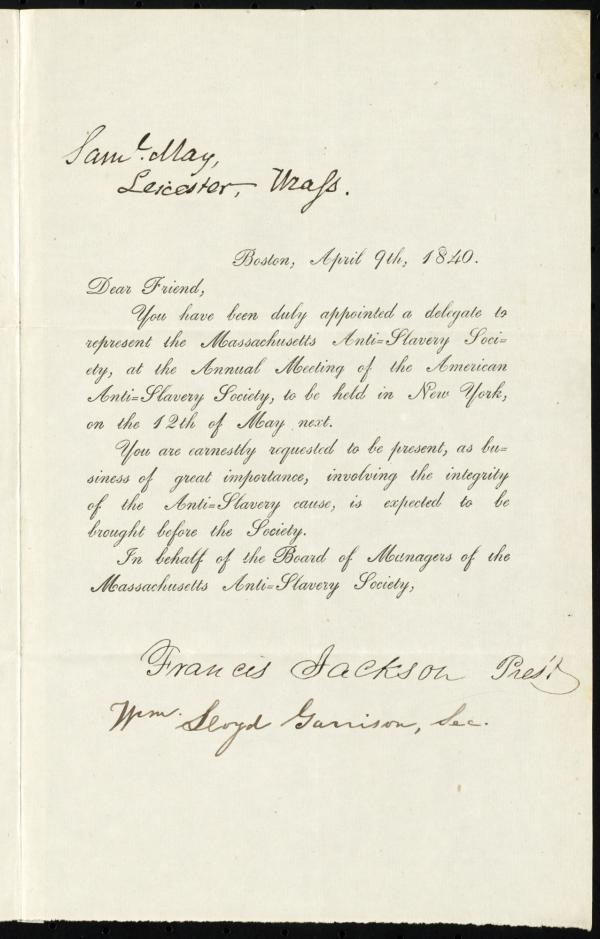 Saml. May,
Leicester, Mass.
Boston, April 9th, 1840.
Dear Friend,
You have been duly appointed a delegate to
represent the Massachusetts Anti=Slavery Soci=
ety, at the Annual Meeting of the American
Anti=Slavery Society, to be held in New York,
on the 12th of May next.
You are earnestly requested to be present, as bu=
siness of great importance, involving the integrity
of the Anti=Slavery cause, is expected to be
brought before the Society.
In behalf of the Board of Managers of the
Massachusetts Anti=Slavery Society,
Francis Jackson Pres't
Wm. Lloyd Garrison, Sec.